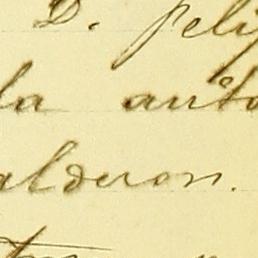 D. feli
la anto
alderon.